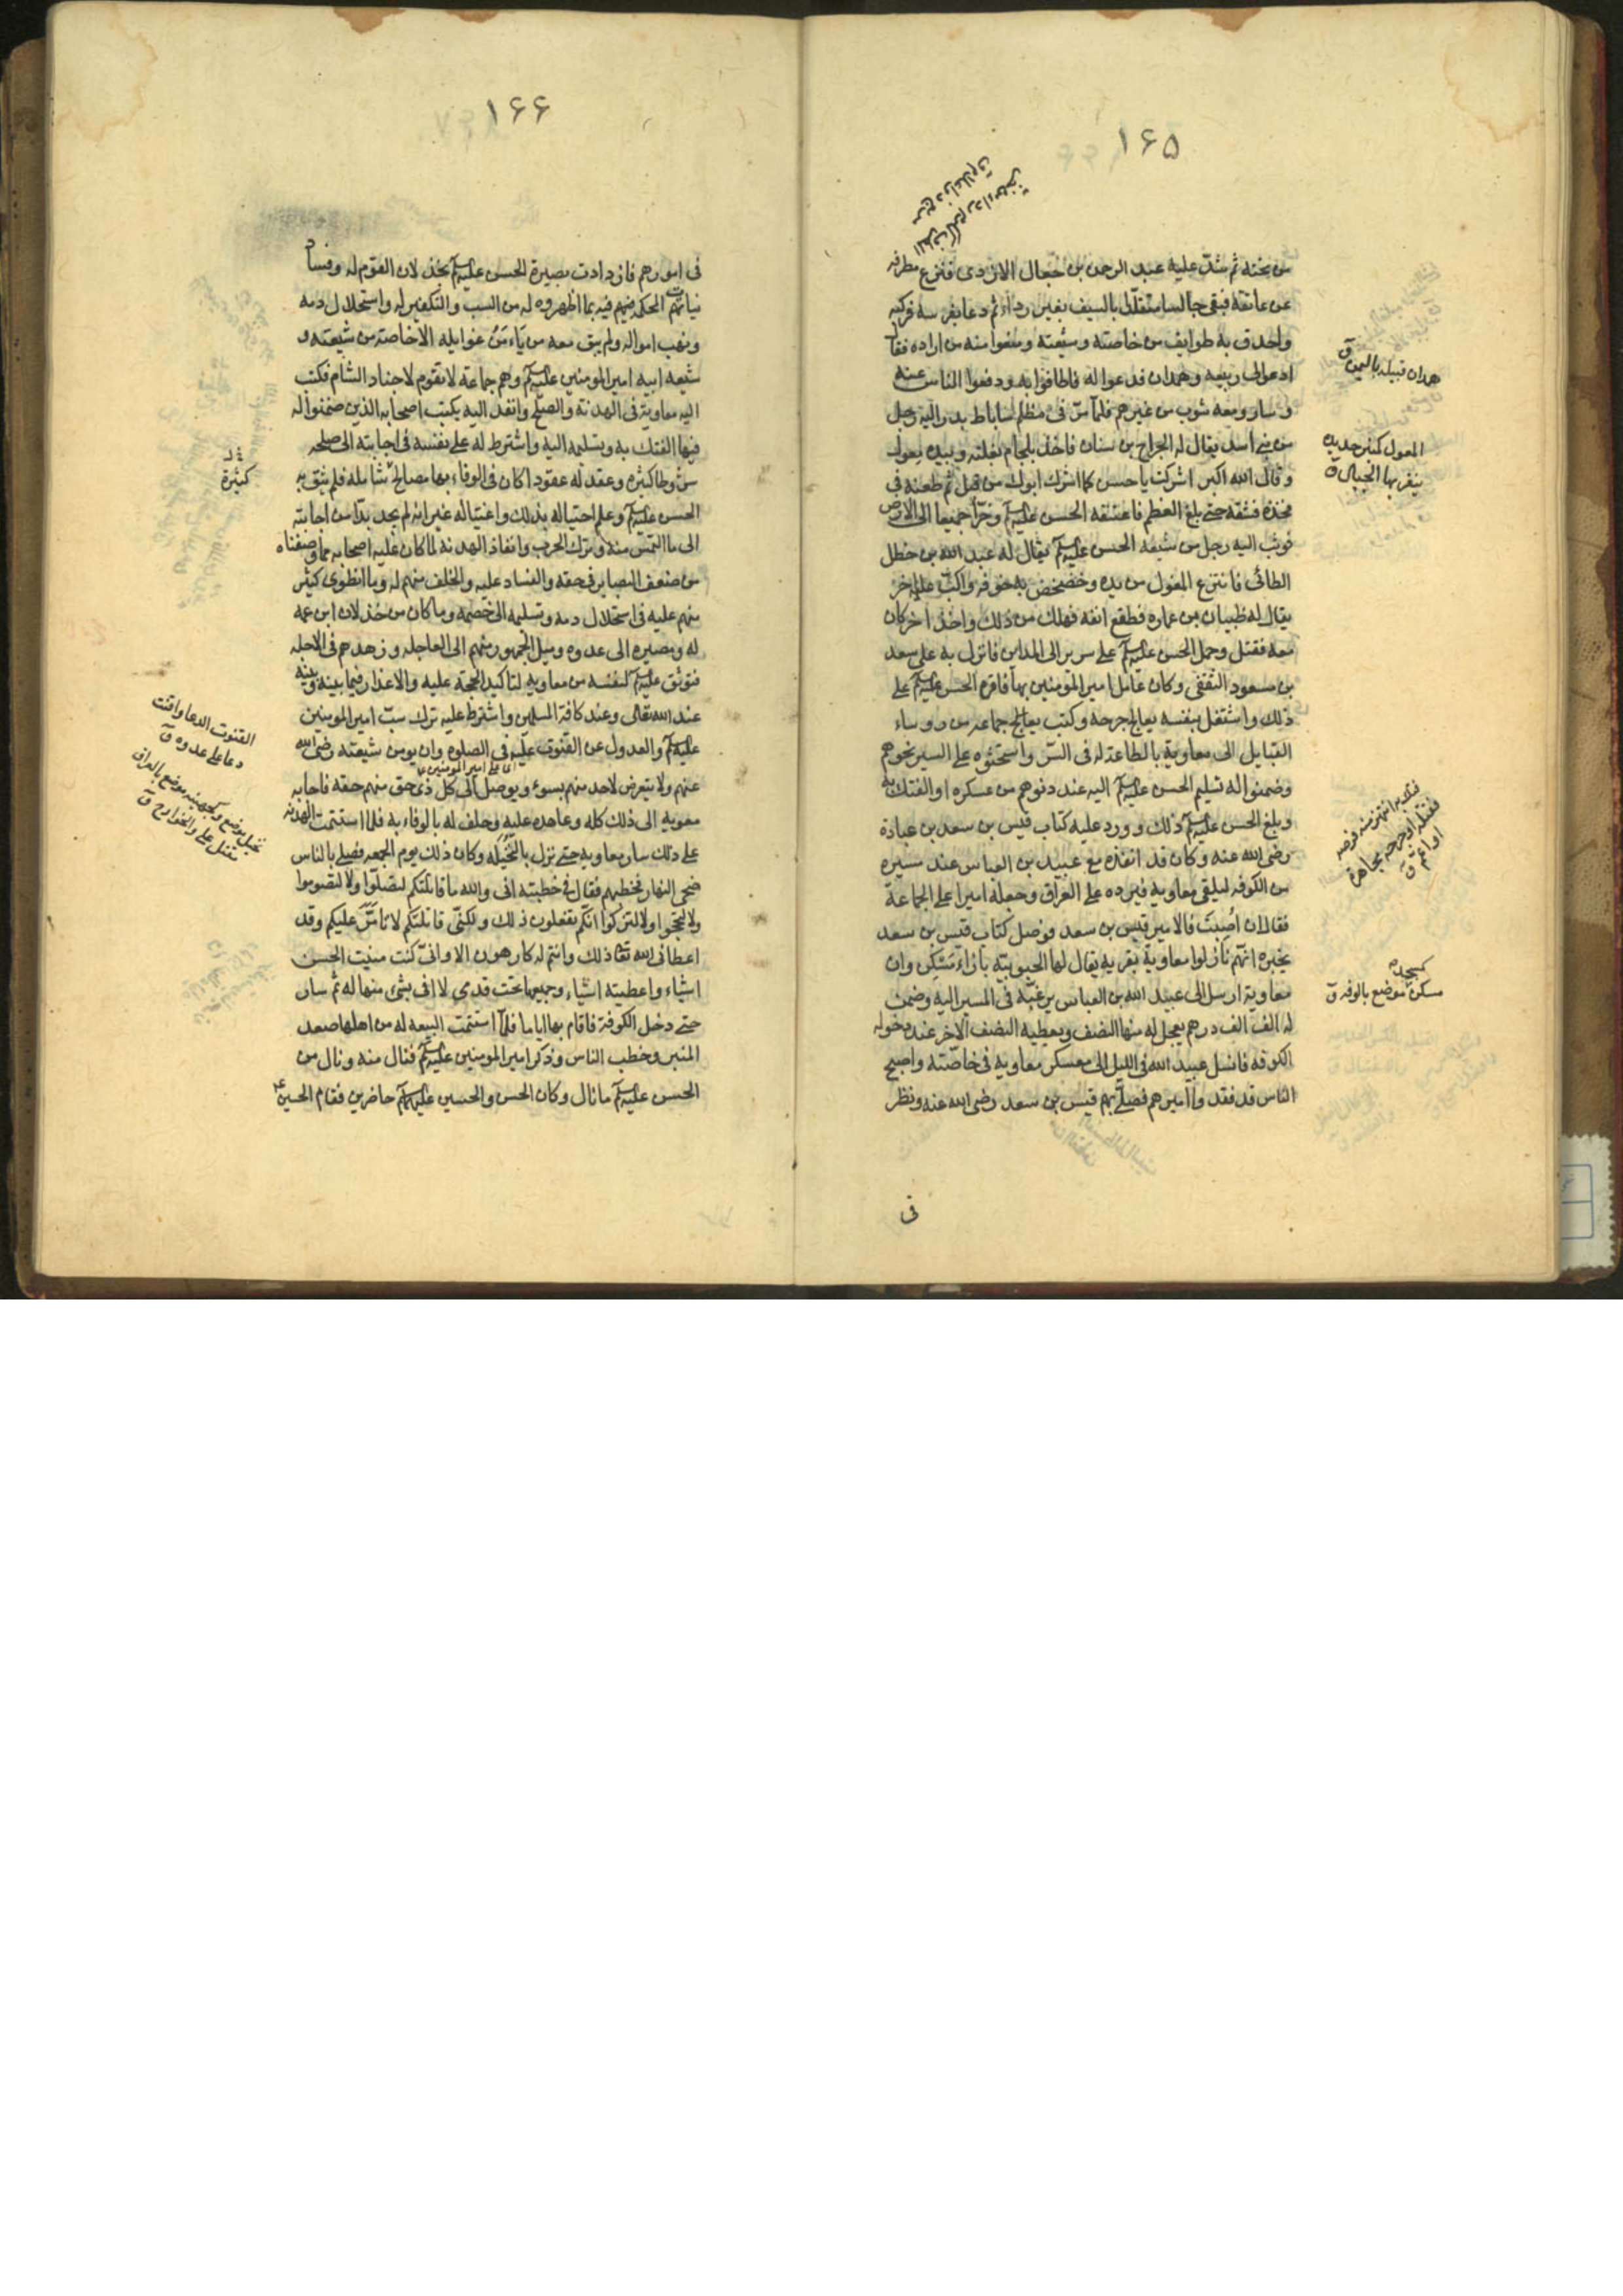 ١۶۵
من تحته ثم شد عليه عبد الرحمن بن جعال الازدى فنزع مطرفه
عن عاتقه فبقى جالسا متقلّدا بالسيف بغير رداء ثم دعا بفرسه فركبه
واحدق به طوايف من خاصته وشيعته ومنعوا منه من اراده فقال
ادعوا لى ربيعه وهمدان فدعوا له فاطافوا به ودفعوا الناس عنه
وسار ومعه شوب من غيرهم فلمّا مرّ فى مظلم ساباط بدر اليه رجل
من بنى اسد يقال له الجراح بن سنان فاخذ بلجام بغلته وبيده مغول
وقال الله اكبر اشركت يا حسن كما اشرك ابوك من قبل ثم طعنه فى
فخذه فشقه حتى بلغ العظم فاعتنقه الحسن عليه السلم وخرّا جميعا الى الارض
فوثب اليه رجل من شيعه الحسن عليه السلم يقال له عبد الله بن خطل
الطائى فانتزع المغول من يده وخضخض به جوفه واكبّ عليه اخر
يقال له ظبيان بن عماره فقطع انفه فهلك من ذلك واخذ اخر كان
معه فقتل وحمل الحسن عليه السلم على سرير الى المداين فانزل به على سعد
بن مسعود الثقفى وكان عامل امير المؤمنين بها فاقره الحسن عليه السلم على
ذلك واشتغل بنفسه يعالج جرحه وكتب جماعه من روساء
القبايل الى معاوية بالطاعة له فى السّر واستحثوه على السير نحوهم
وضمنوا له تسليم الحسن عليه السلم اليه عند دنوهم من عسكره او الفتك به
وبلغ الحسن عليه السلم ذلك وورد عليه كتاب قيس بن سعد بن عبادة
رضى الله عنه وكان قد انفذه مع عبيد بن العباس عند مسيره
من الكوفه ليلقى معاويه فيرده على العراق وجعله اميرا على الجماعة
فقال ان اُصبتَ فالامير قيس بن سعد فوصل كتاب قيس بن سعد
يخبره انّهم نازلوا معاوية بقريه يقال لها الحبوبيّه بازاء مَسْكِن وان
معاوية ارسل الى عبيد الله بن العباس يرغبّه فى المسير اليه وضمن
له الف الف درهم يعجل له منها النصف ويعطيه النصف الآخر عند دخوله
الكوفه فانسل عبيد الله فى الليل الى معسكر معاويه فى خاصّته واصبح
الناس قد فقدوا اميرهم فصلّى بهم قيس بن سعد رضى الله عنه ونظر
فى
همدان قبيله باليمن ق
المعول كمنبر حديده
ينقر بها الجبال ق
كمسجده
مسكن موضع بالوفه ق
١۶۶
فى امورهم فازدادت بصيرة الحسن عليه السلم بخذلان القوم له وفساد
نيات المحكمه فيهم فيه بما اظهروه له من السب والتكفير له واستحلال دمه
ونهب امواله ولم يبق معه من يأمن غوايله الا خاصته من شيعته و
شيعه ابيه امير المومنين عليه السلم وهم جماعة لا تقوم لاجناد الشام فكتب
اليه معاوية فى الهدنة والصلح وانفذ اليه بكتب اصحابه الذين ضمنوا له
فيها الفتك به وتسليمه اليه واشترط له على نفسه فى اجابته الى صلحه
شروطا كثيره وعقد له عقودا كان فى الوفاء بها مصالح شامله فلم يثق به
الحسن عليه السلم وعلم احتياله بذلك واغتياله غير انه لم يجد بدّا من اجابته
الى ما التمس منه من ترك الحرب وانفاذ الهدنه لما كان عليه اصحابه مما وصفناه
من ضعف البصاير فى حقه والفساد عليه والخلف منهم له وما انطوى كثير
منهم عليه فى استحلال دمه وتسليمه الى خصمه وما كان من خذلان ابن عمه
له ومصيره الى عدوه وميل الجمهور منهم الى العاجله وزهدهم فى الاجله
فتوثق عليه السلم لنفسه من معاويه لتاكيد الحجة عليه والاعذار فيما بينه وبينه
عند الله تعالى وعند كافة المسلمين واشترط عليه ترك سبّ امير المومنين
عليه السلم والعدول عن القنوت عليه فى الصلوه وان يومن شيعته رضى الله
اى على امير المومنين ع
عنهم ولا يتعرض لاحد منهم بسوء ويوصل الى كل ذى حق منهم حقه فاجابه
معويه الى ذلك كله وعاهده عليه وحلف له بالوفاء به فلما استتمت الهدنه
على ذلك سار معاويه حتى نزل بالنُّخَيْله وكان ذلك يوم الجمعه فصلى بالناس
ضحى النهار فخطبهم فقال فى خطبته انى والله ما قاتلتكم لتصلّوا ولا لتصوموا
ولا لتحجّوا ولا لتزكّوا انّكم تفعلون ذلك ولكنّى قاتلتكم لاتأمَّرَ عليكم وقد
اعطانى الله تعا ذلك وانتم له كارهون الا وانّى كنت منيت الحسن
اشياء واعطيته اشياء وجميعها تحت قدمى لا افى بشىء منها له ثم سار
حتى دخل الكوفة فاقام بها اياما فلمّا استتمت البيعه له من اهلها صعد
المنبر وخطب الناس وذكر امير المومنين عليه السلم فنال منه ونال من
الحسن عليه السلم ما نال وكان الحسن والحسين عليهما السلم حاضرين فقام الحسين ع
كثيرة
القنوت الدعا واقنت
دعا على عدوه ق
نخيل موضع وكجهينه موضع بالعراق
مقتل على والخوارج ق